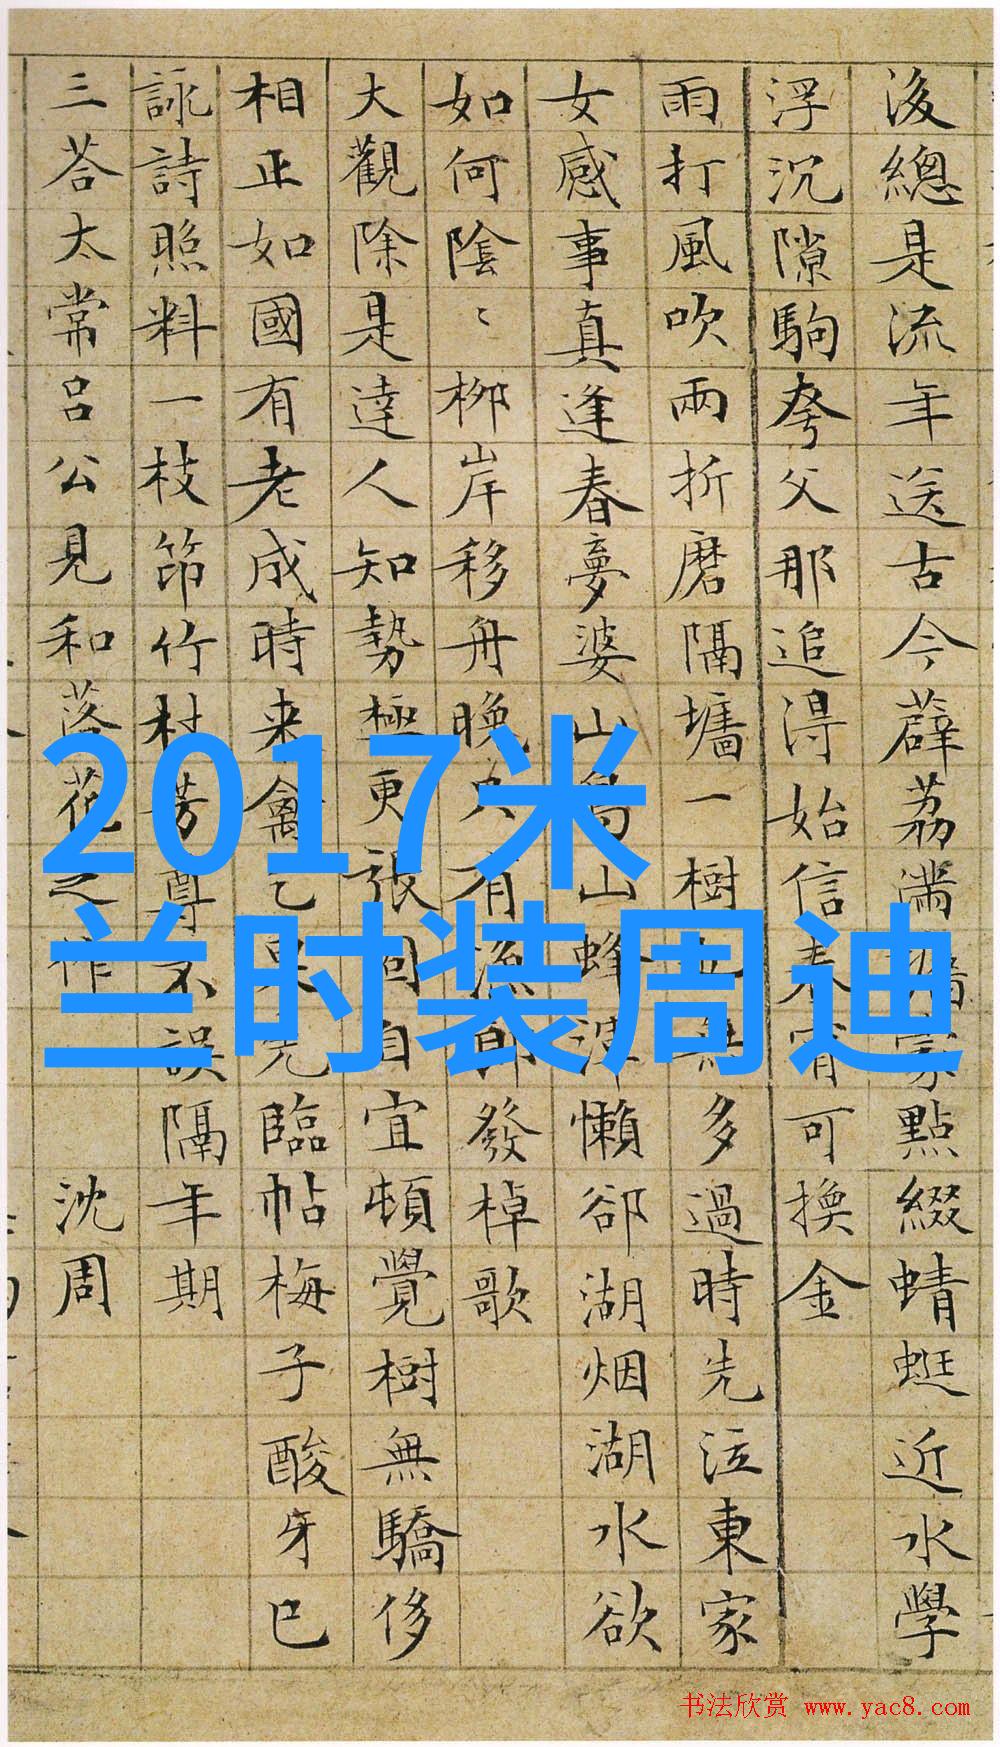 後總是流年送古今薜荔滿家點綴蜻蜓近水學
浮沉隙駒夸父那追得始信春宵可換金
雨打風吹兩折磨隔墻一樹也無多過時先泣東家
女感事真逢春夢婆山鳥山蜂懶郤湖烟湖水欲
如何陰〻柳岸移舟晚久有漁郎發棹歌
大觀除是達人知勢極更張固自宜頓覺樹無驕侈
相正如國有老成時来禽已果先臨帖梅子酸牙巳
詠詩照料一枝笻竹村芳尊不誤隔年期
三荅太常呂公見和落花之作 沈周
2017米
兰时装周迪
书法欣赏 www.yac8.com